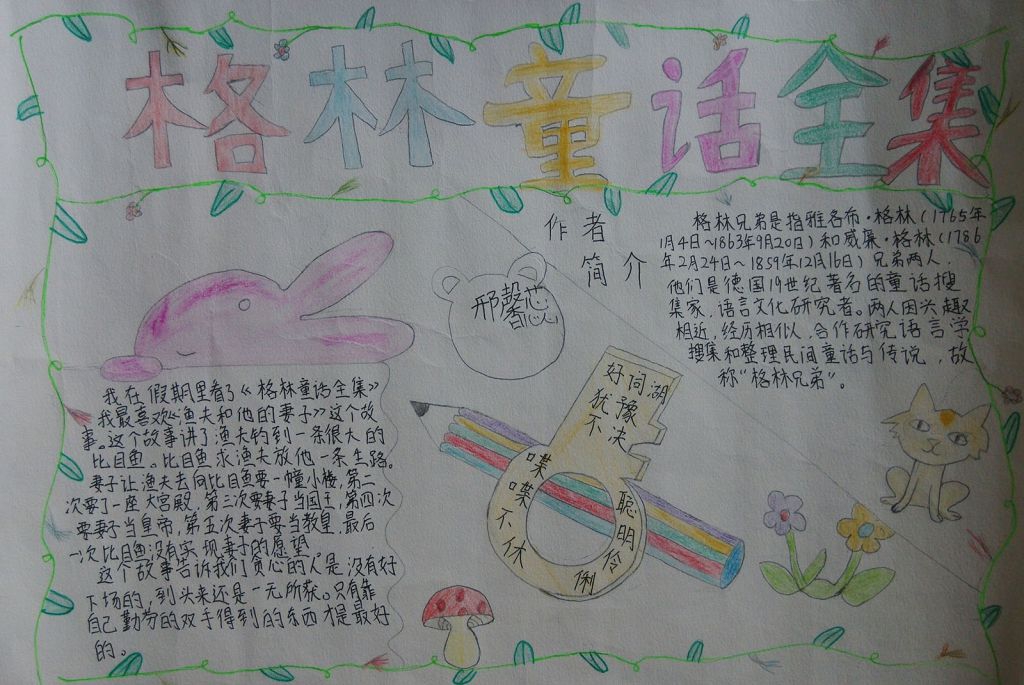 格林童话全集
作者
简介
格林兄弟是指雅各布·格林（1765年
1月4日~1863年9月20日）和威廉·格林（1786
年2月24日~1859年12月16日）兄弟两人．
他们是德国19世纪著名的童话搜
集家，语言文化研究者。两人因兴趣
相近，经历相似，合作研究语言学
搜集和整理民间童话与传说，故
称“格林兄弟”。
邢馨蕊
我在假期里看了《格林童话全集》
我最喜欢《渔夫和他的妻子》这个故
事。这个故事讲了渔夫钓到一条很大的
比目鱼。比目鱼求渔夫放他一条生路。
妻子让渔夫去向比目鱼要一幢小楼，第二
次要了一座大宫殿，第三次要妻子当国王，第四次
要妻子当皇帝，第五次妻子要当教皇，最后
一次比目鱼没有实现妻子的愿望
这个故事告诉我们贪心的人是没有好
下场的，到头来还是一无所获。只有靠
自己勤劳的双手得到的东西才是最好
的。
好词湖
犹豫
不决
喋喋不休
聪明伶俐